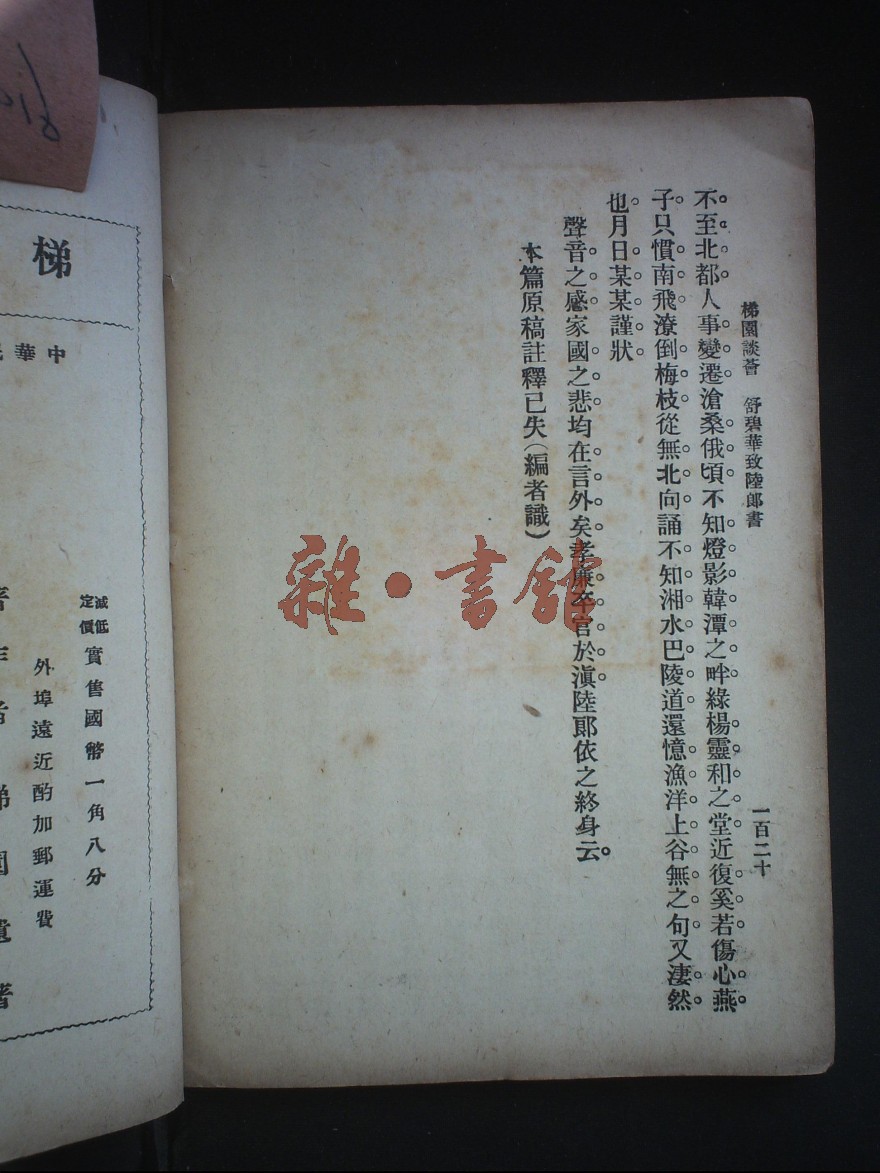 梯園談薈　舒碧華致陸郎書　一百二十
不至。北都人事變遷。滄桑俄頃。不知燈影韓潭之畔。綠楊靈和之堂。近復奚若。傷心燕
子。只慣南飛。潦倒梅枝。從無北向。誦不知湘水巴陵道。還憶漁洋上谷無之句。又淒然
也。月日某某謹狀。
聲音之感。家國之悲。均在言外矣。孝廉卒官於滇。陸郎依之終身云。
本篇原稿註釋已失（編者識）
雜·書館
梯
中華
減低定價實售國幣一角八分
外埠遠近酌加郵運費